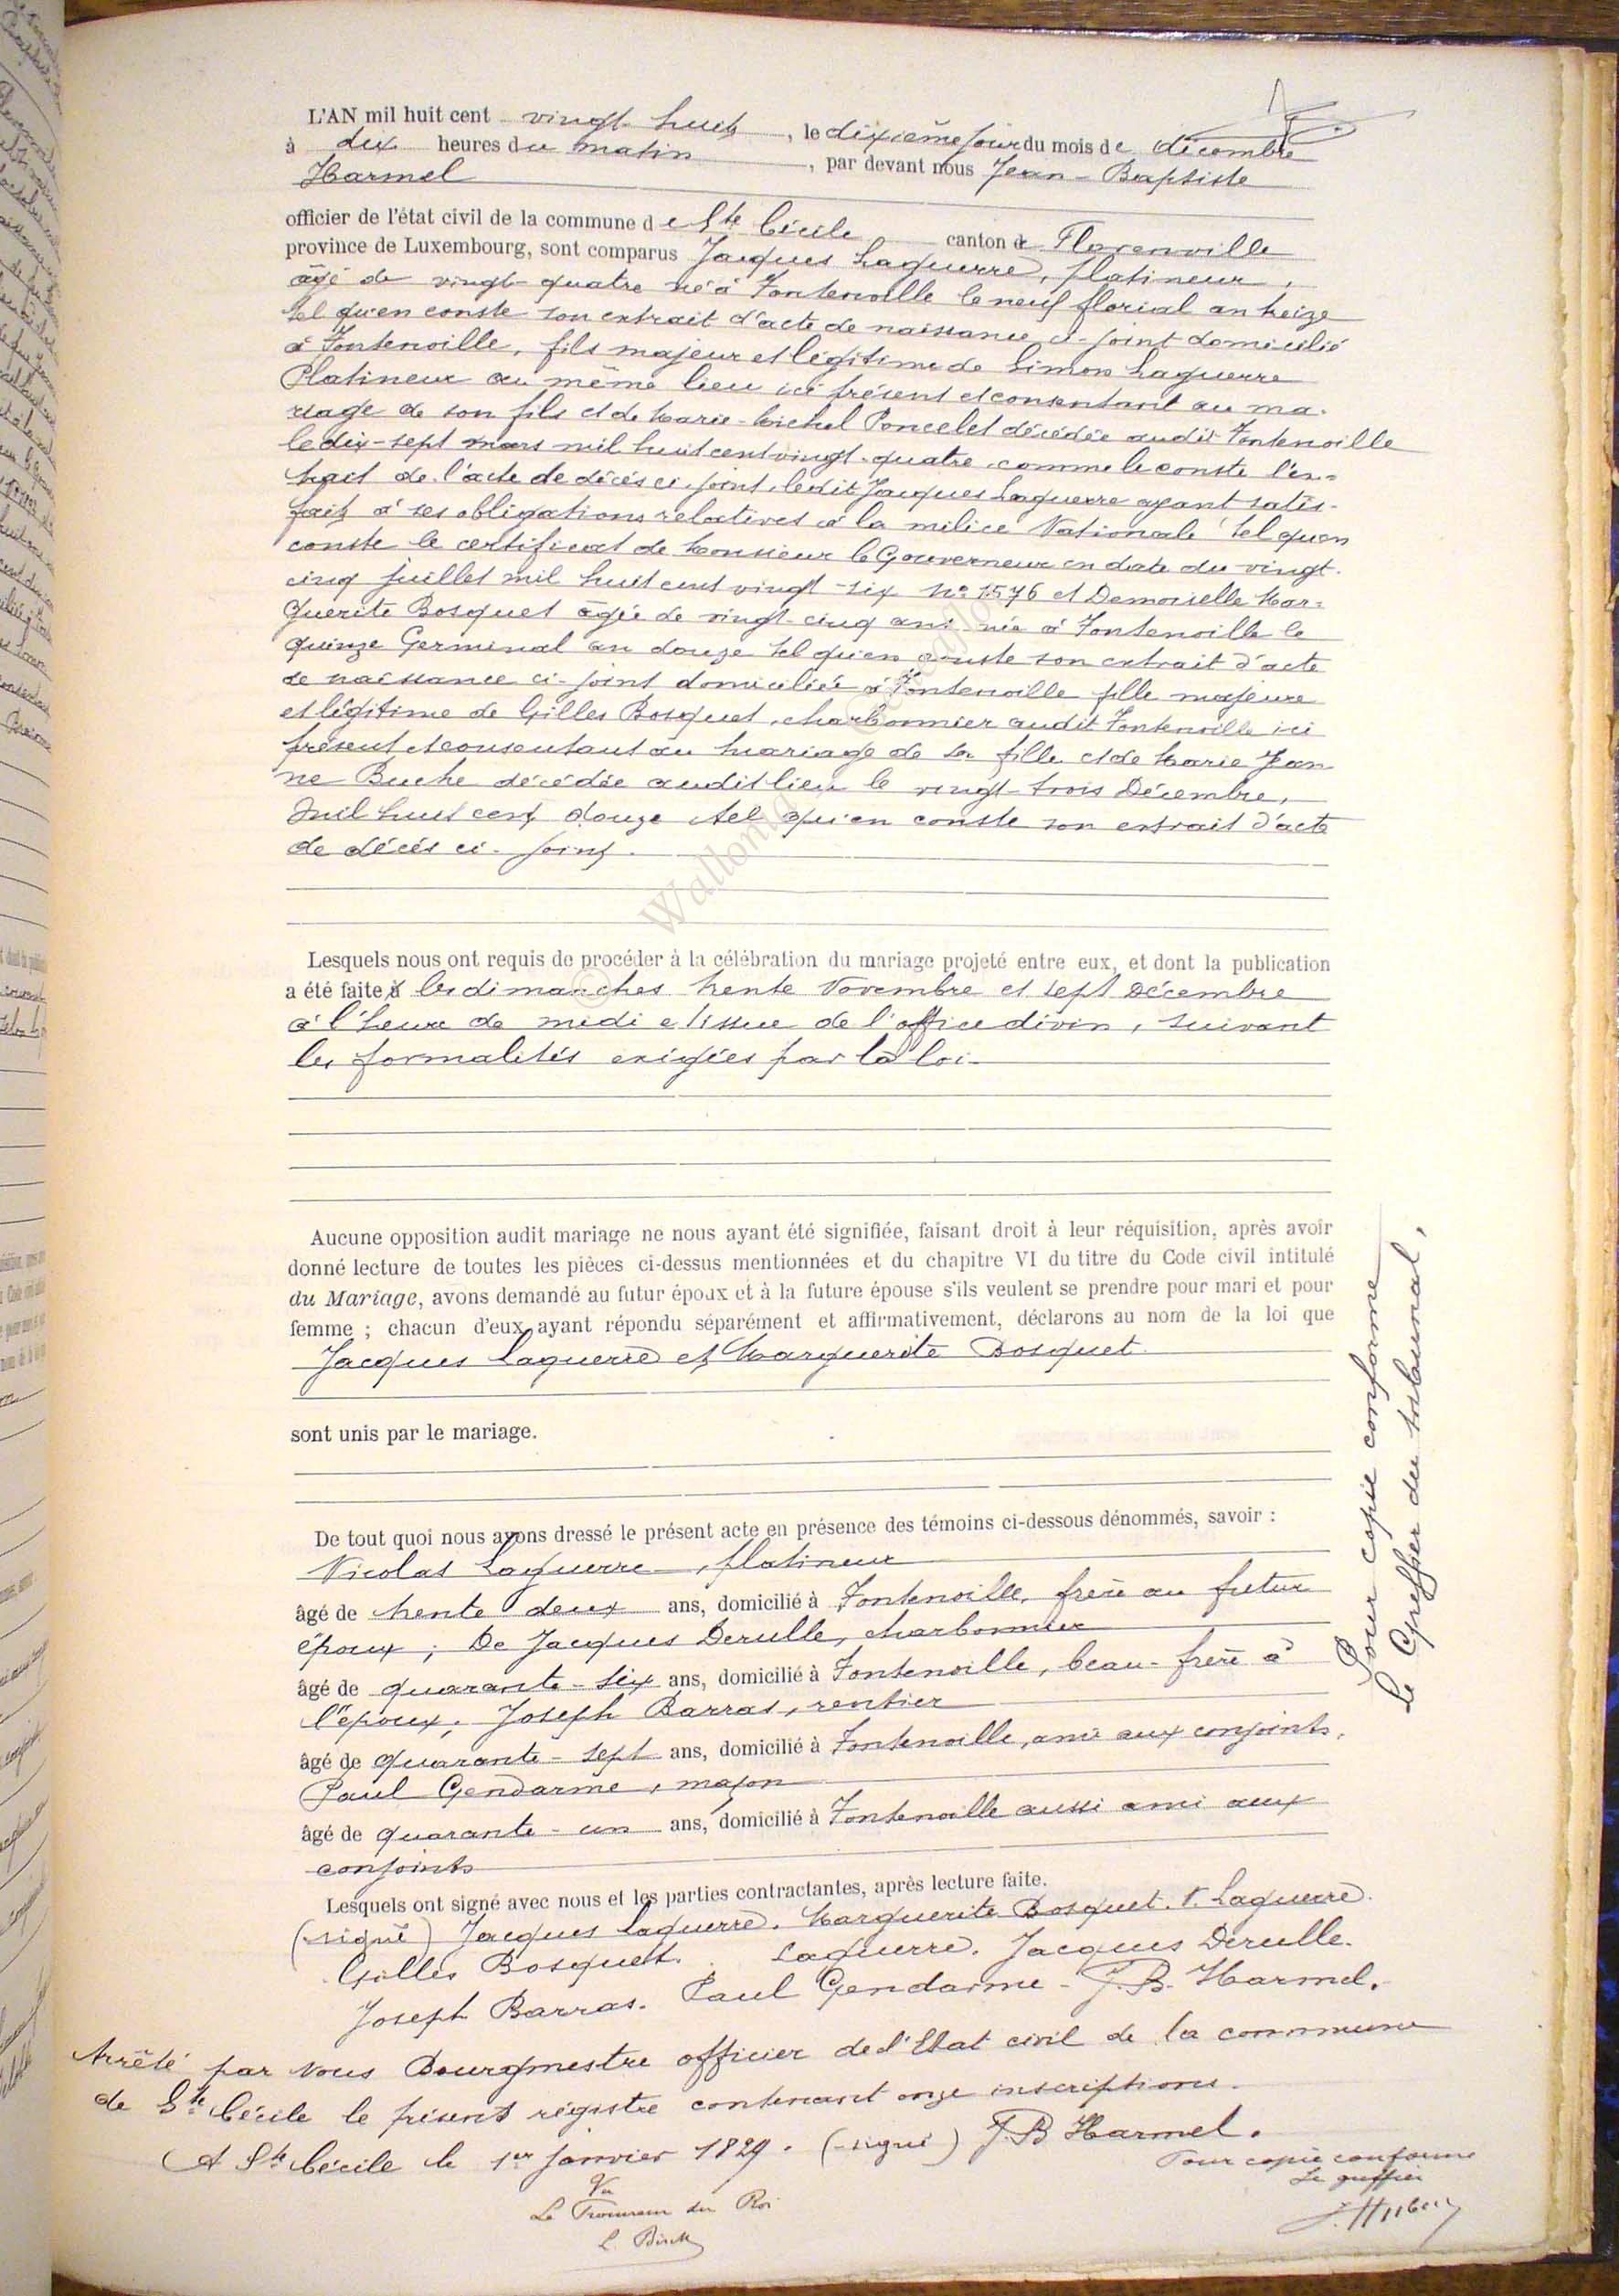 L'AN mil huit cent vingt-huit, le dixième jour du mois de décembre
à dix heures du matin, par devant nous Jean-Baptiste
Harmel
officier de l'état civil de la commune de Ste Cécile canton de Florenville
province de Luxembourg, sont comparus Jacques Laguerre, platineur,
âgé de vingt-quatre né à Fontenoille le neuf florial an treize
tel qu'en conste son extrait d'acte de naissance ci-joint domicilié
à Fontenoille, fils majeur et légitime de Simon Laguerre
Platineur au même lieu ici présent et consentant au ma-
riage de son fils et de Marie-Michel Poncelet décédée audit Fontenoille
le dix-sept mars mil huit cent vingt-quatre comme le conste l'ex-
trait de l'acte de décès ci-joint, ledit Jacques Laguerre ayant satis-
fait à ses obligations relatives à la milice Nationale tel qu'en
conste le certificat de Monsieur le Gouverneur en date du vingt-
cinq juillet mil huit cent vingt-six No 1576 et Demoiselle Mar-
guerite Bosquet âgée de vingt-cinq ans née à Fontenoille le
quinze Germinal an douze tel qu'en conste son extrait d'acte
de naissance ci-joint domiciliée à Fontenoille fille majeure
et légitime de Gilles Bosquet, charbonnier audit Fontenoille ici
présent et consentant au mariage de sa fille et de Marie Jean
ne Buche décédée audit lieu le vingt-trois Décembre,
mil huit cent douze tel qu'en conste son extrait d'acte
de décès ci-joint.
Lesquels nous ont requis de procéder à la célébration du mariage projeté entre eux, et dont la publication
a été faite à les dimanches trente Novembre et sept Décembre
à l'heure de midi et issue de l'office divin, suivant
les formalités exigées par la loi.
Aucune opposition audit mariage ne nous ayant été signifiée, faisant droit à leur réquisition, après avoir
donné lecture de toutes les pièces ci-dessus mentionnées et du chapitre VI du titre du Code civil intitulé
du Mariage, avons demandé au futur époux et à la future épouse s'ils veulent se prendre pour mari et pour
femme ; chacun d'eux ayant répondu séparément et affirmativement, déclarons au nom de la loi que
Jacques Laguerre et Marguerite Bosquet
sont unis par le mariage.
De tout quoi nous avons dressé le présent acte en présence des témoins ci-dessous dénommés, savoir :
Nicolas Laguerre, platineur
âgé de trente deux ans, domicilié à Fontenoille, frère au futur
époux; De Jacques Derulle, charbonnier
âgé de quarante-six ans, domicilié à Fontenoille, beau-frère à
l'époux; Joseph Barras, rentier
âgé de quarante-sept ans, domicilié à Fontenoille, ami aux conjoints,
Paul Gendarme, maçon
âgé de quarante-un ans, domicilié à Fontenoille aussi ami aux
conjoints
Lesquels ont signé avec nous et les parties contractantes, après lecture faite.
(signé) Jacques Laguerre. Marguerite Bosquet. N. Laguerre.
Gilles Bosquet. Laguerre. Jacques Derulle.
Joseph Barras. Paul Gendarme - J.B. Harmel.
Arrêté par Nous Bourgmestre officier de l'Etat civil de la commune
de Ste Cécile le présent régistre contenant onze inscriptions.
A Ste Cécile le 1er Janvier 1829. (signé) J.B Harmel.
Pour copie conforme
Le greffier
Vu
Le Procureur du Roi
Pour copie conforme
Le Greffier du tribunal,
© Wallonia